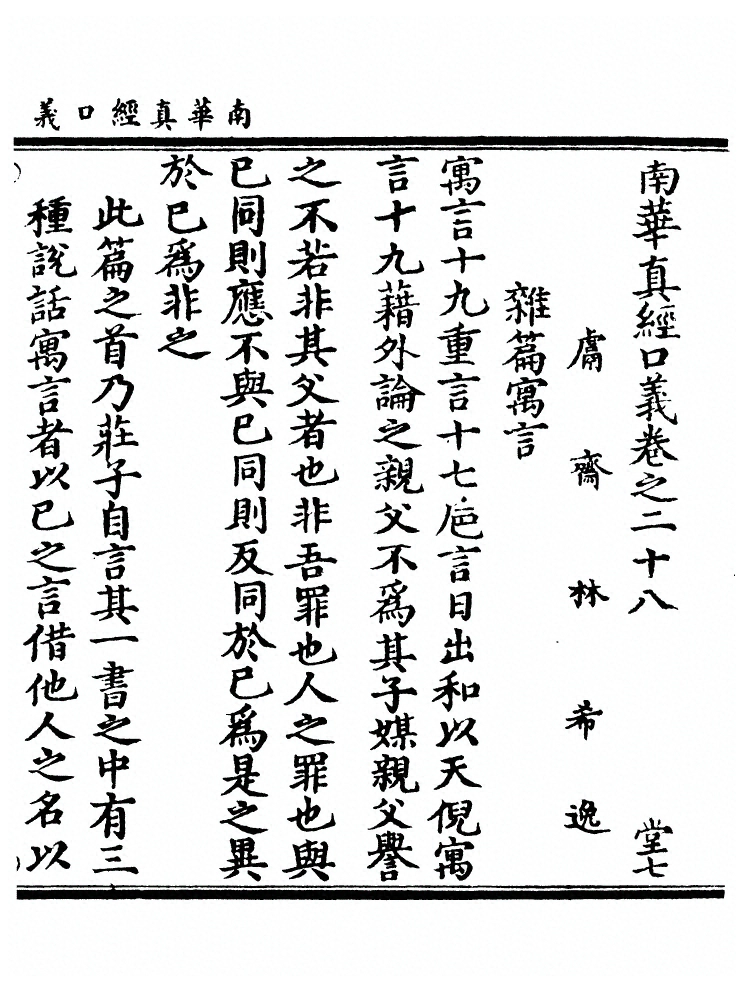 南華真經口義
南華真經口義卷之二十八　堂七
鬳齋林希逸
雜篇寓言
寓言十九重言十七巵言日出和以天倪寓
言十九藉外論之親父不爲其子媒親父譽
之不若非其父者也非吾罪也人之罪也與
已同則應不與已同則反同於已爲是之異
於已爲非之
此篇之首乃莊子自言其一書之中有三
種說話寓言者以已之言借他人之名以